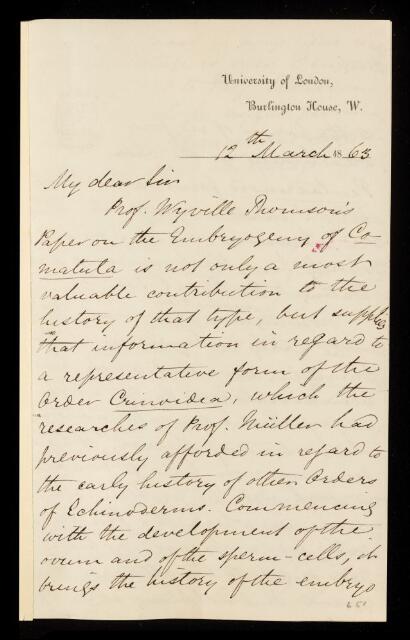 University of London,
Burlington House, W.
12th March 1863
My dear Sir
Prof. Wyville Thomson's
Paper on the Embryogeny of Co-
matula is not only a most
valuable contribution to the
history of that type, but supplies
that information in regard to
a representative form of the
Order Crinoidea, which the
researches of Prof. Müller had
previously afforded in regard to
the early history of other Orders
of Echinoderms. Commencing
with the development of the
ovum and of the sperm-cells, it
brings the history of the embryo